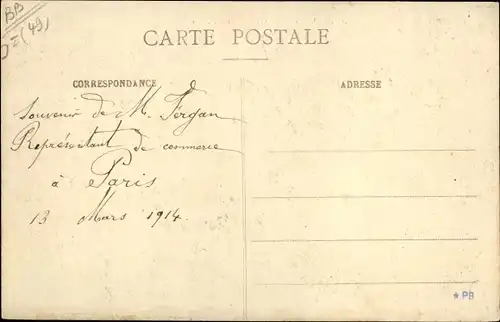 BB
CARTE POSTALE
CORRESPONDANCE
ADRESSE
Souvenir de M. Fergan
Représentant de commerce
à Paris
13 Mars 1914.
* PB